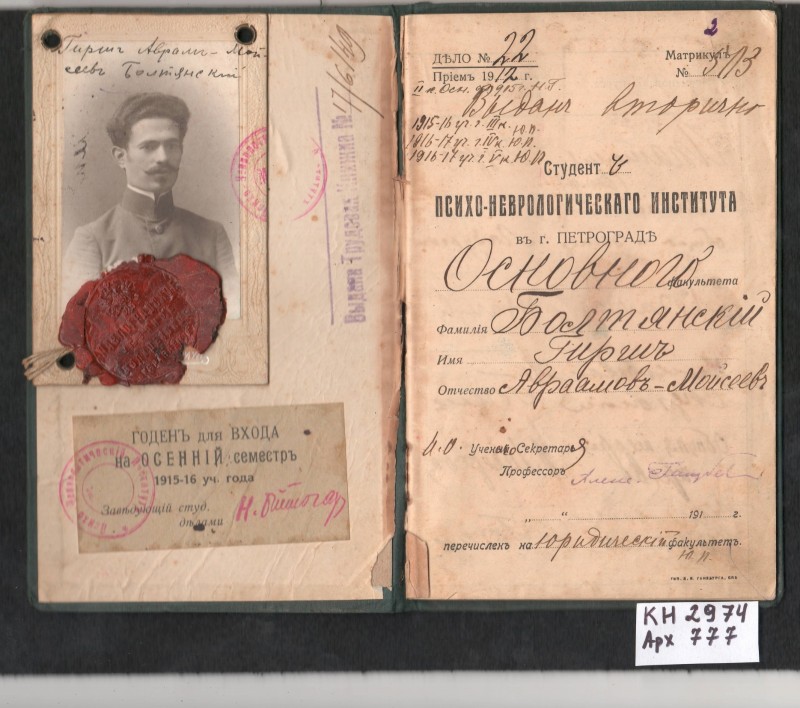 Гиршъ Авраам-Мой-
сеевъ Болтянскій
Выдана Трудовая Книжка №
ГОДЕНЪ для ВХОДА
на ОСЕННІЙ семестръ
1915-16 уч. года
Завѣдующій студ.
дѣлами
2
ДѢЛО № 22
Матрикулъ
№
Пріемъ 1912 г.
Выданъ вторично
1915-16 уч. г. III к. Ю.П.
1916-17 уч. г. IV к. Ю.П.
1916-17 уч. г. V к. Ю.П.
Студентъ
ПСИХО-НЕВРОЛОГИЧЕСКАГО ИНСТИТУТА
въ г. ПЕТРОГРАДѢ
Основного факультета
Фамилія Болтянскій
Имя Гиршъ
Отчество Авраамовъ-Мойсеевъ
И.О. Ученаго Секретаря
Профессоръ
„ “ 191 г.
перечисленъ на юридическій факультетъ.
Ю.П.
КН 2974
Арх 777